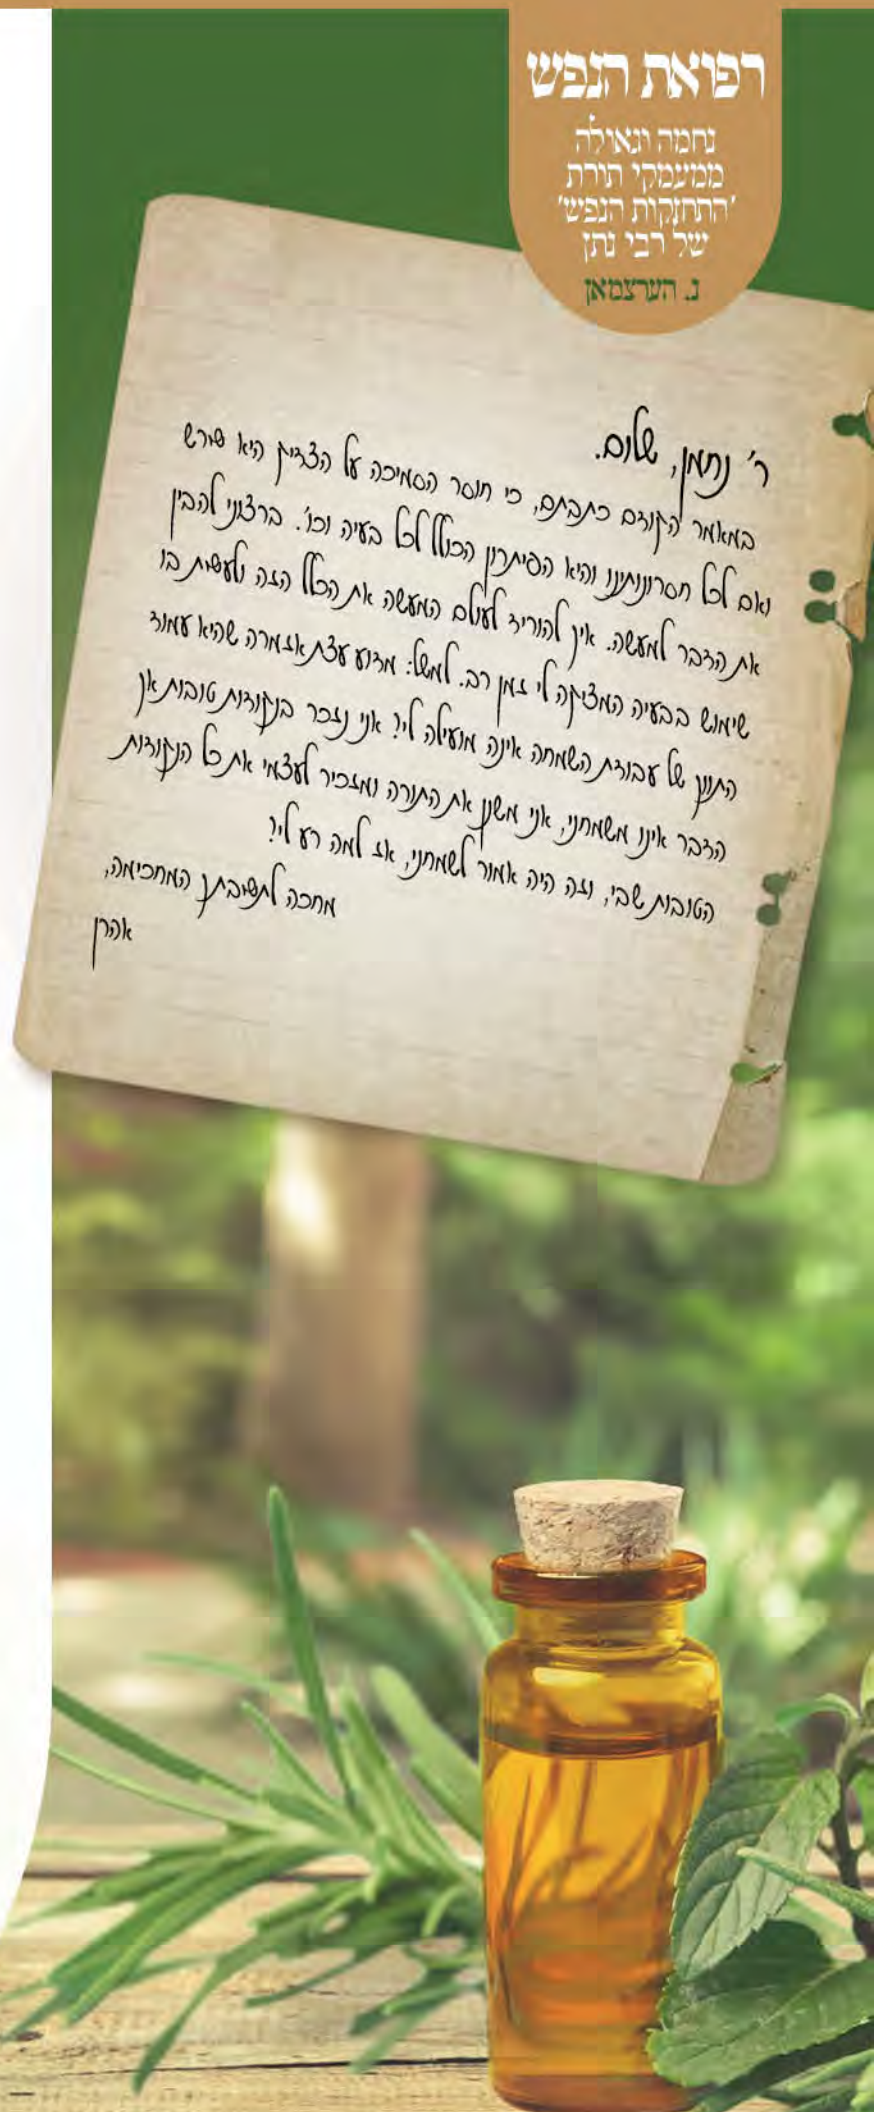 רפואת הנפש
נחמה וגאולה
ממעמקי תורת
'התחזקות הנפש'
של רבי נתן
נ. הערצמאן
ר' נחמן, שלום.
במאמר הקודם כתבתם, כי חוסר הסמיכה על הצדיק היא שורש
ואם לכל חסרונותינו והיא הפיתרון הכולל לכל בעיה וכו'. ברצוני להבין
את הדבר למעשה. איך להוריד לעולם המעשה את הכלל הזה ולעשות בו
שימוש בבעיה המציקה לי זמן רב. למשל: מדוע עצת אזמרה שהיא עמוד
התווך של עבודת השמחה אינה מועילה לי? אני נזכר בנקודות טובות אך
הדבר אינו משמחני, אני משנן את התורה ומזכיר לעצמי את כל הנקודות
הטובות שבי, וזה היה אמור לשמחני, אז למה רע לי?
מחכה לתשובתך המחכימה,
אהרן